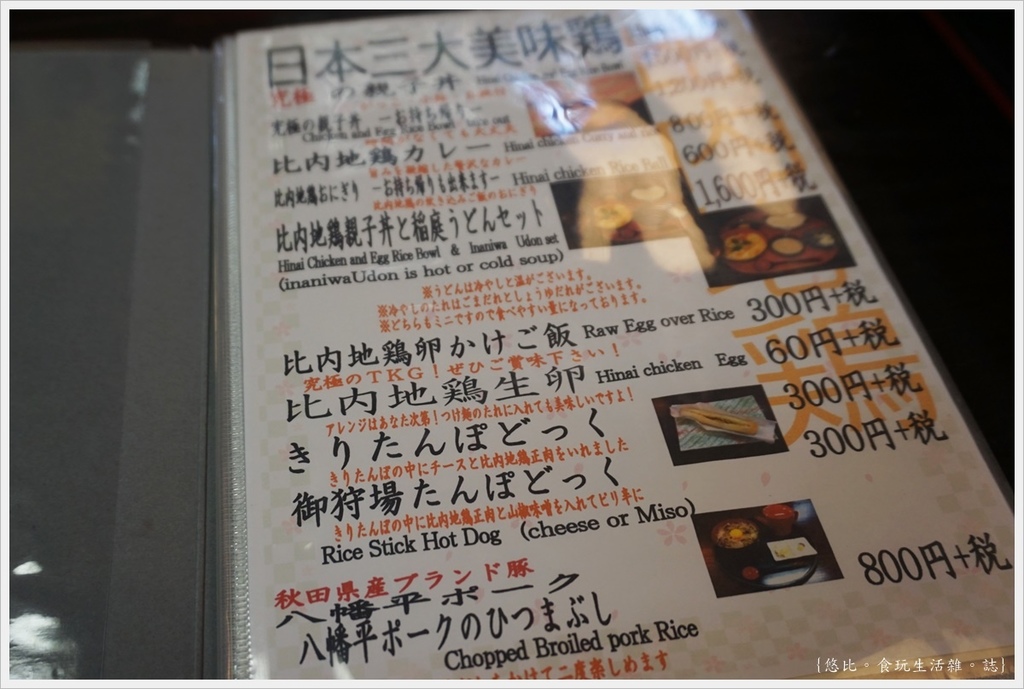 日本三大美味鶏
究極の親子丼
究極の親子丼 ーお持ち帰りー
Chicken and Egg Rice Bowl
比内地鶏カレー Hinai chicken Curry and
800円+税
旨みを凝縮した贅沢なカレー
比内地鶏おにぎり ーお持ち帰りも出来ますー Hinai chicken Rice Ball
600円+税
比内地鶏の炊き込みご飯のおにぎり
比内地鶏親子丼と稲庭うどんセット
1,600円+税
Hinai Chicken and Egg Rice Bowl & Inaniwa Udon set
(inaniwaUdon is hot or cold soup)
※うどんは冷やしと温がございます。
※冷やしのたれはごまだれとしょうゆだれがございます。
※どちらもミニですので食べやすい量になっております。
比内地鶏卵かけご飯 Raw Egg over Rice 300円+税
究極のTKG!ぜひご賞味下さい!
比内地鶏生卵 Hinai chicken Egg 60円+税
アレンジはあなた次第!つけ麺のたれに入れても美味しいですよ!
きりたんぽどっく 300円+税
きりたんぽの中にチースと比内地鶏正肉をいれました
御狩場たんぽどっく 300円+税
きりたんぽの中に比内地鶏正肉と山椒味噌を入れてピリ辛に
Rice Stick Hot Dog (cheese or Miso)
秋田県産ブランド豚
八幡平ポーク
八幡平ポークのひつまぶし 800円+税
Chopped Broiled pork Rice
かけて二度楽しめます
{悠比。食玩生活雜。誌}